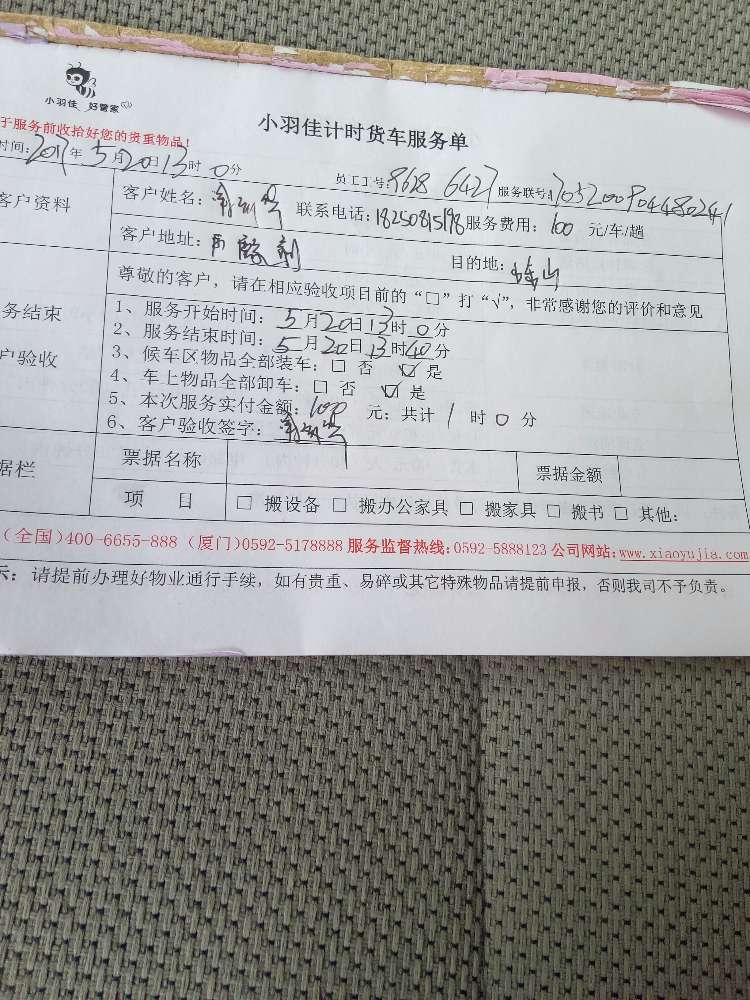 小羽佳 好管家
小羽佳计时货车服务单
于服务前收拾好您的贵重物品！
时间：2017年5月20日13时0分 员工工号：8628 6427 服务联号：
客户资料 客户姓名： 联系电话：18250815198 服务费用：100 元/车/趟
客户地址： 目的地：金山
尊敬的客户，请在相应验收项目前的“□”打“√”，非常感谢您的评价和意见
务结束
户验收
1、服务开始时间：5月20日13时0分
2、服务结束时间：5月20日13时40分
3、候车区物品全部装车：□ 否 ☑ 是
4、车上物品全部卸车：□ 否 ☑ 是
5、本次服务实付金额：100 元；共计 1 时 0 分
6、客户验收签字：
据栏 票据名称 票据金额
项 目 □ 搬设备 □ 搬办公家具 □ 搬家具 □ 搬书 □ 其他：
（全国）400-6655-888（厦门）0592-5178888 服务监督热线：0592-5888123 公司网站：www.xiaoyujia.com
示：请提前办理好物业通行手续，如有贵重、易碎或其它特殊物品请提前申报，否则我司不予负责。